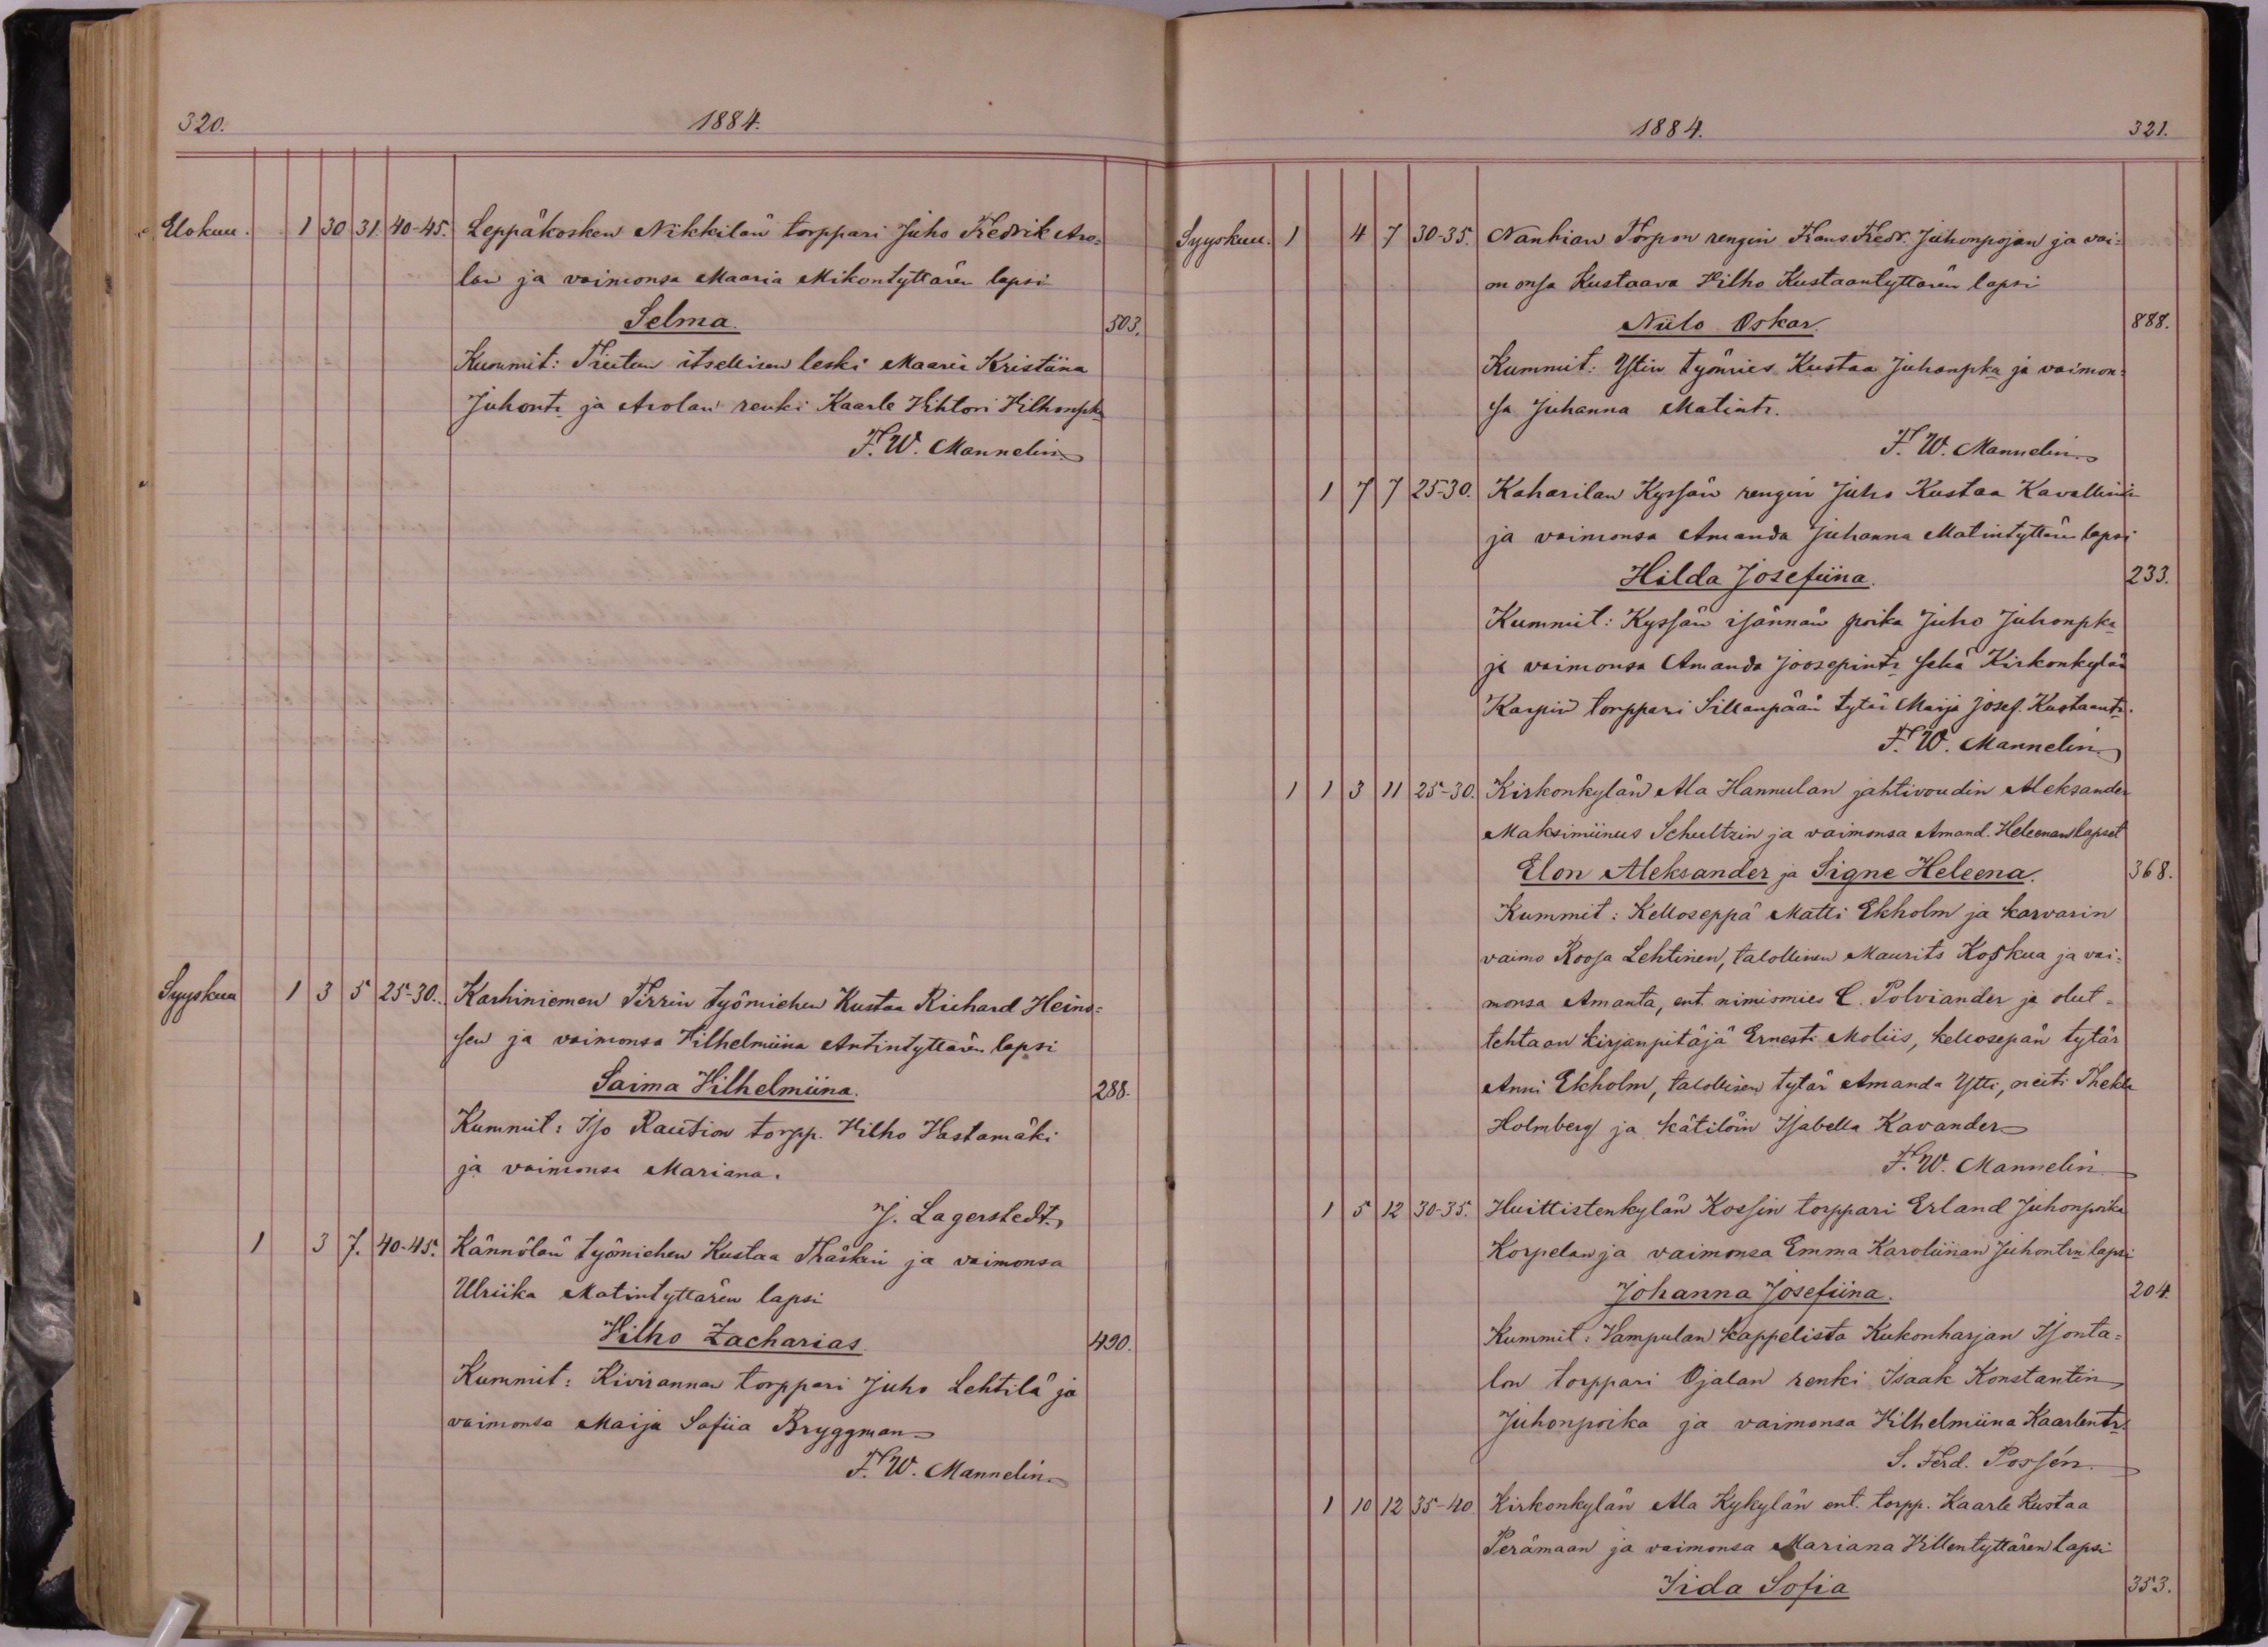 320.
1884.
Elokuu. 1 30 31 40-45. Leppäkosken Nikkilän torppari Juho Fredrik Aro=
lan ja vaimonsa Maaria Mikontyttären lapsi
Selma. 503.
Kummit: itsellisen leski Maaria Kristiina
Juhontr. ja Arolan renki Kaarle Vihtori Vilhonpka
F. W. Mannelin.
Syyskuu 1 3 5 25-30. Karhiniemen Pirrin työmiehen Kustaa Richard Heino=
sen ja vaimonsa Vilhelmiina Antintyttären lapsi
Saima Vilhelmiina. 288.
Kummit: Iso Raution torpp. Vilho Hastamäki
ja vaimonsa Mariana.
J. Lagerstedt.
1 3 7. 40-45. Kännölän työmiehen Kustaa Thäskin ja vaimonsa
Ulriika Matintyttären lapsi
Vilho Zacharias. 490.
Kummit: Kivirannan torppari Juho Lehtilä ja
vaimonsa Maija Sofiia Bryggman
F. W. Mannelin.
1884.
321.
Syyskuu. 1 4 7 30-35. Nanhian Torpon rengin Frans Fredr. Juhonpojan ja vai=
monsa Kustaava Vilho Kustaantyttären lapsi
Niilo Oskar. 888.
Kummit: Ytin työmies Kustaa Juhanpka ja vaimon=
sa Juhanna Matintr.
F. W. Mannelin.
1 7 7 25-30. Kaharilan Kyssän rengin Juho Kustaa
ja vaimonsa Amanda Juhanna Matintyttären lapsi
Hilda Josefiina. 233.
Kummit: Kyssän isännän poika Juho Juhonpka
ja vaimonsa Amanda Joosepintr sekä Kirkonkylän
Karpin torppari Sillanpään tytär Maija Josef. Kustaantr.
F. W. Mannelin.
1 1 3 11 25-30. Kirkonkylän Ala Hannulan jahtivoudin Aleksander
Maksimiinus Schultzin ja vaimonsa Amand. Heleenan lapset
Elon Aleksander ja Signe Heleena. 368.
Kummit: Kelloseppä Matti Ekholm ja karvarin
vaimo Roosa Lehtinen, talollinen Maurits Koskua ja vai=
monsa Amanta, ent. nimismies C. Polviander ja olut=
tehtaan kirjanpitäjä Ernesti Moliis, kellosepän tytär
Anni Ekholm, talollisen tytär Amanda Ytti, neiti Thekla
Holmberg ja kätilöin Isabella Kavander
F. W. Mannelin
1 5 12 30-35. Huittistenkylän Kossin torppari Erland Juhonpoika
Korpelan ja vaimonsa Emma Karoliinan Juhontrn lapsi
Johanna Josefiina. 204.
Kummit: Vampulan kappelista Kukonharjan Isonta=
lon torppari Ojalan renki Isaak Konstantin
Juhonpoika ja vaimonsa Vilhelmiina Kaarlentr.
S. Ferd. Possén.
1 10 12 35-40 Kirkonkylän Ala Kykylän ent. torpp. Kaarle Kustaa
Perämaan ja vaimonsa Mariana Villentyttären lapsi
Iida Sofia 353.